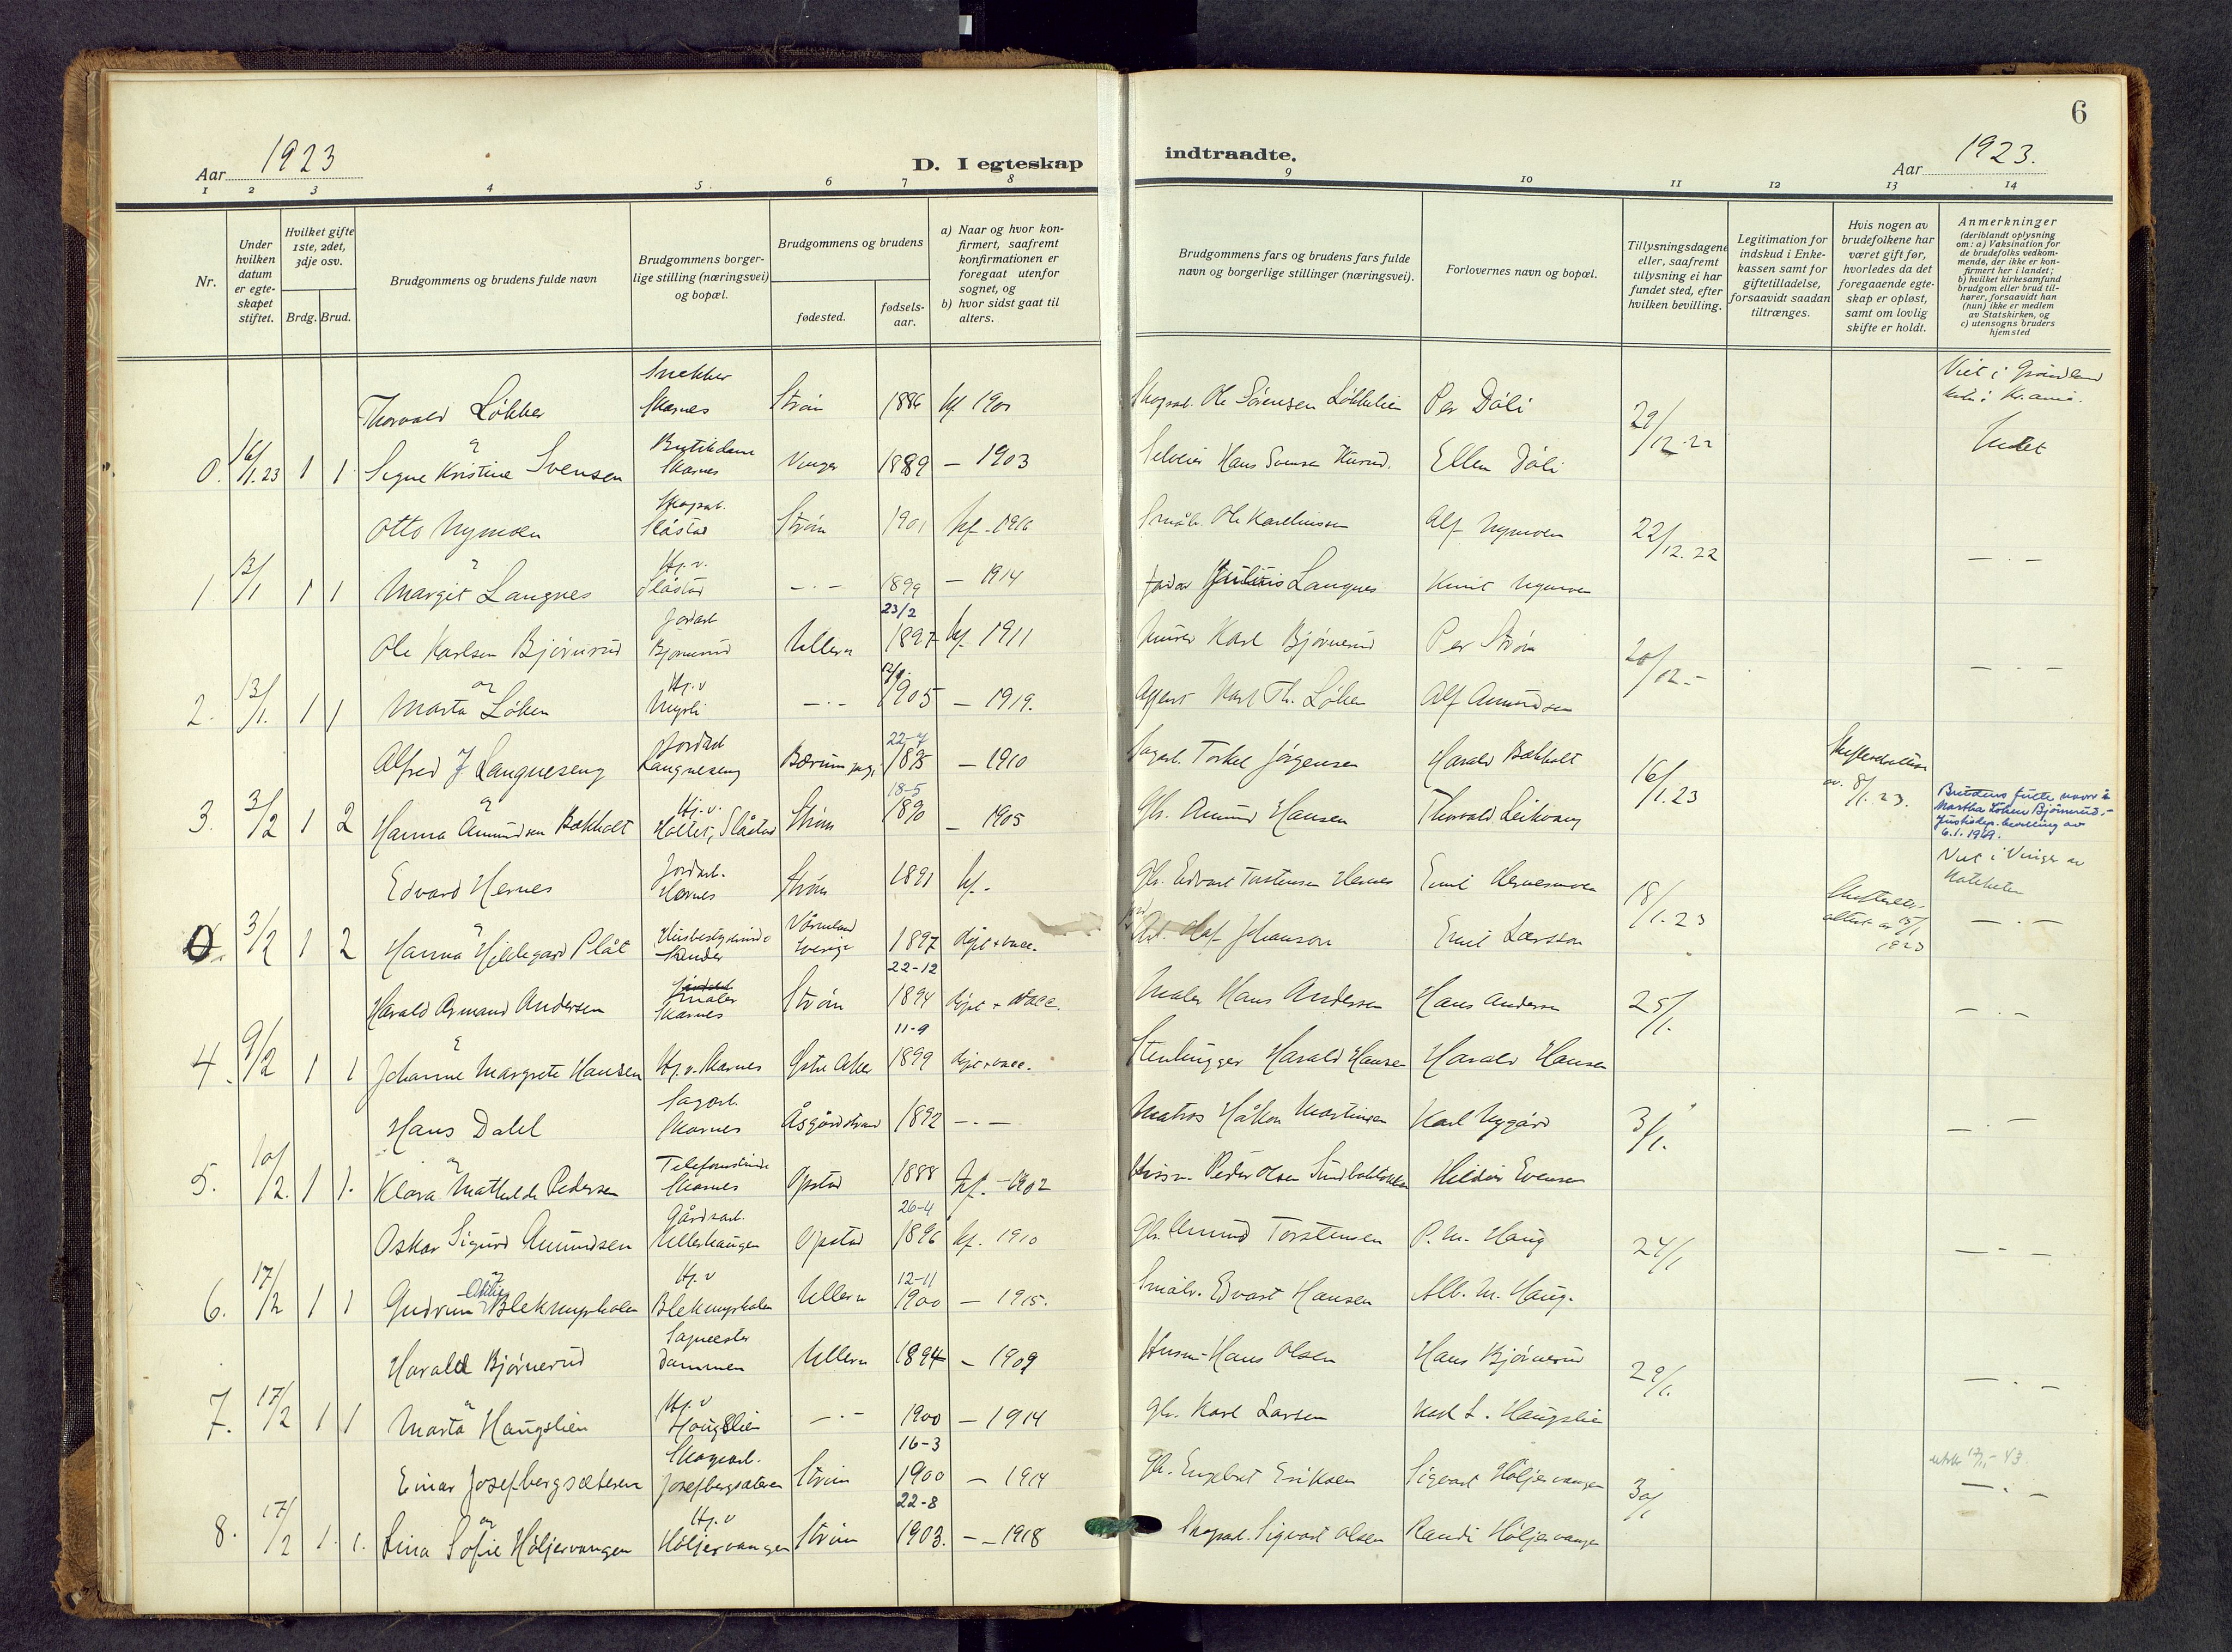 6
Aar 1923
D. I egteskap
indtraadte.
Aar 1923.
1 2 3 4 5 6 7 8 9 10 11 12 13 14
Nr.
Under hvilken datum er egteskapet stiftet.
Hvilket gifte 1ste, 2det, 3dje osv.
Brdg. Brud.
Brudgommens og brudens fulde navn
Brudgommens borgerlige stilling (næringsvei) og bopæl.
Brudgommens og brudens
fødested.
fødselsaar.
a) Naar og hvor konfirmert, saafremt konfirmationen er foregaat utenfor sognet, og
b) hvor sidst gaat til alters.
Brudgommens fars og brudens fars fulde navn og borgerlige stillinger (næringsvei).
Forlovernes navn og bopæl.
Tillysningsdagene eller, saafremt tillysning ei har fundet sted, efter hvilken bevilling.
Legitimation for indskud i Enkekassen samt for giftetilladelse, forsaavidt saadan tiltrænges.
Hvis nogen av brudefolkene har været gift før, hvorledes da det foregaaende egteskap er opløst, samt om lovlig skifte er holdt.
Anmerkninger (deriblandt oplysning om: a) Vaksination for de brudefolks vedkommende, der ikke er konfirmert her i landet; b) hvilket kirkesamfund brudgom eller brud tilhører, forsaavidt han (hun) ikke er medlem av Statskirken, og c) utensogns bruders hjemsted
Thorvald Løkker Snekker Skarnes Strøm 1886 kf. 1901 Skogsarb. Ole Sørensen Løkkelien Per Døli 29/12-22 Viet i
0. 16/1.23 1 1 Signe Kristine Svensen Butikdame Skarnes Vinger 1889 — 1903 Selveier Hans Svensen Ellen Døli Intet
Otto Nymoen Skogsarb. Slåstad Strøm 1901 kf. 1916 Småbr. Ole Karelinssen Alf Nymoen 22/12.22
1. 13/1 1 1 Margit Langnes Hj.v. Slåstad —.— 1899 — 1914 Langnes Knut Nymoen —.—
Ole Karlsen Bjørnerud Jordarb Bjørnerud Ullern 23/2 1897 kf. 1911 Murer Karl Bjørnerud Per Strøm 20/12.-
2. 13/1. 1 1 Marta Løken Hj.v Myrli —.— 1905 — 1919. Agent Karl Th. Løken Alf Amundsen —.—
Alfred J Langneseng Jordarb Langneseng Bærum 22-7 1895 — 1910 Sagarb. Torkel Jørgensen Harald Bækholt 16/1.23 av. 8/1. 23.
3. 3/2 1 2 Hanna Amundsen Bækholt Hj.v. Holter, Slåstad Strøm 18-5 1890 — 1905 Gbr. Amund Hansen Thorvald Leikvang
Brudens fulle navn er Martha Løken Bjørnerud,- Justisdep. bevilling av 6.1.1969.
Edvard Hernes Jordarb. Hernes Strøm 1891 kf. Gbr. Edvart Torstensen Hernes Emil Hernesmoen 18/1.23 Viet i Vinger av
0. 3/2 1 2 Hanna Hildegard Plåt Husbestyrerinde Sander Värmland Sverige 1897 døpt + vacc. Olof Johanson Emil Larsson 15/1 1923 —.—
Harald Armand Andersen Maler Skarnes Strøm 22-12 1894 døpt + vacc. Maler Hans Andersen Hans Andersen 25/1.
4. 9/2 1 1 Johanne Margrete Hansen Hj.v. Skarnes Østre Aker 11-9 1899 døpt + vacc. Stenhugger Harald Hansen Harald Hansen —.—
Hans Dahl Sagarb. Skarnes Åsgårdstrand 1892 —.— Matros Håkon Martinsen Karl Nygård 3/1.
5. 10/2. 1 1. Klara Mathilde Pedersen Telefonistinde Skarnes Opstad 1888 kf. 1902 Husm. Peder Olsen Hildur Evensen —.—
Oskar Sigurd Amundsen Gårdsarb. Ullerhaugen Opstad 26-4 1896 kf. 1910 Gbr. Amund Torstensen P. M. Haug 24/1
6. 17/2 1 1 Gudrun Otilie Blekmyrholen Hj.v Blekmyrholen Ullern 12-11 1900 — 1915. Småbr. Edvart Hansen Alb. M. Haug. —.—
Harald Bjørnerud Sagmester Dammen Ullern 1894 — 1909 Husm. Hans Olsen Hans Bjørnerud 29/1.
7. 17/2 1 1 Marta Haugslien Hj.v Haugslien —.— 1900 — 1914 Gbr. Karl Larsen Karl L. Haugslien —.—
Einar Josefbergsæteren Skogsarb. Josefbergsæteren Strøm 16-3 1900 — 1914 Gbr. Engebret Eriksen Sigvart Høljervangen 30/1
8. 17/2 1. 1. Lina Sofie Høljervangen Hj.v Høljervangen Strøm 22-8 1903. — 1918 Skogsarb. Sigvart Olsen Randi Høljervangen —.—